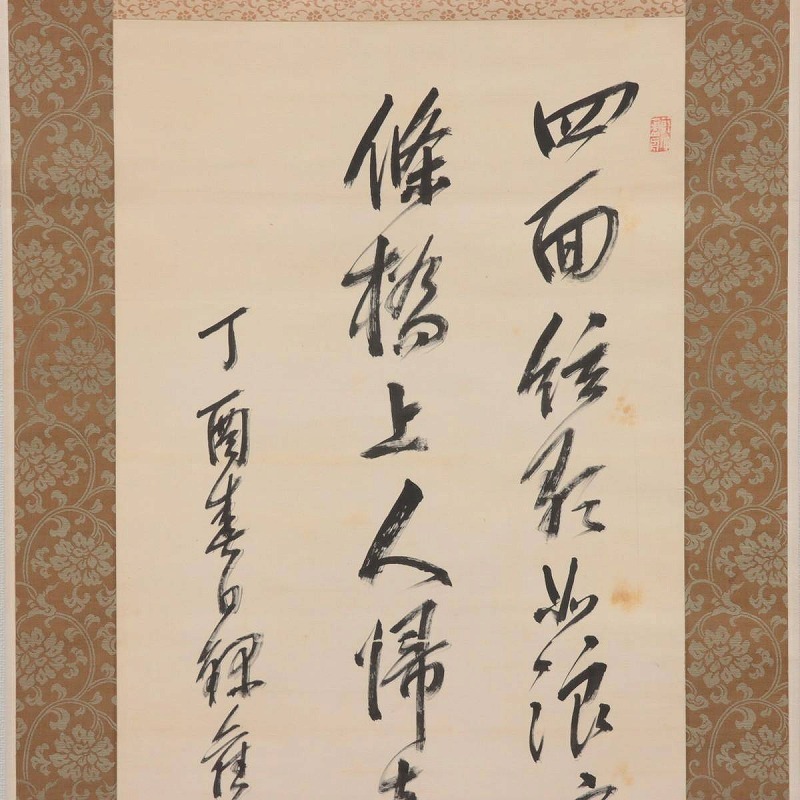 四面絃歌如浪
條橋上人帰
丁酉春日録舊